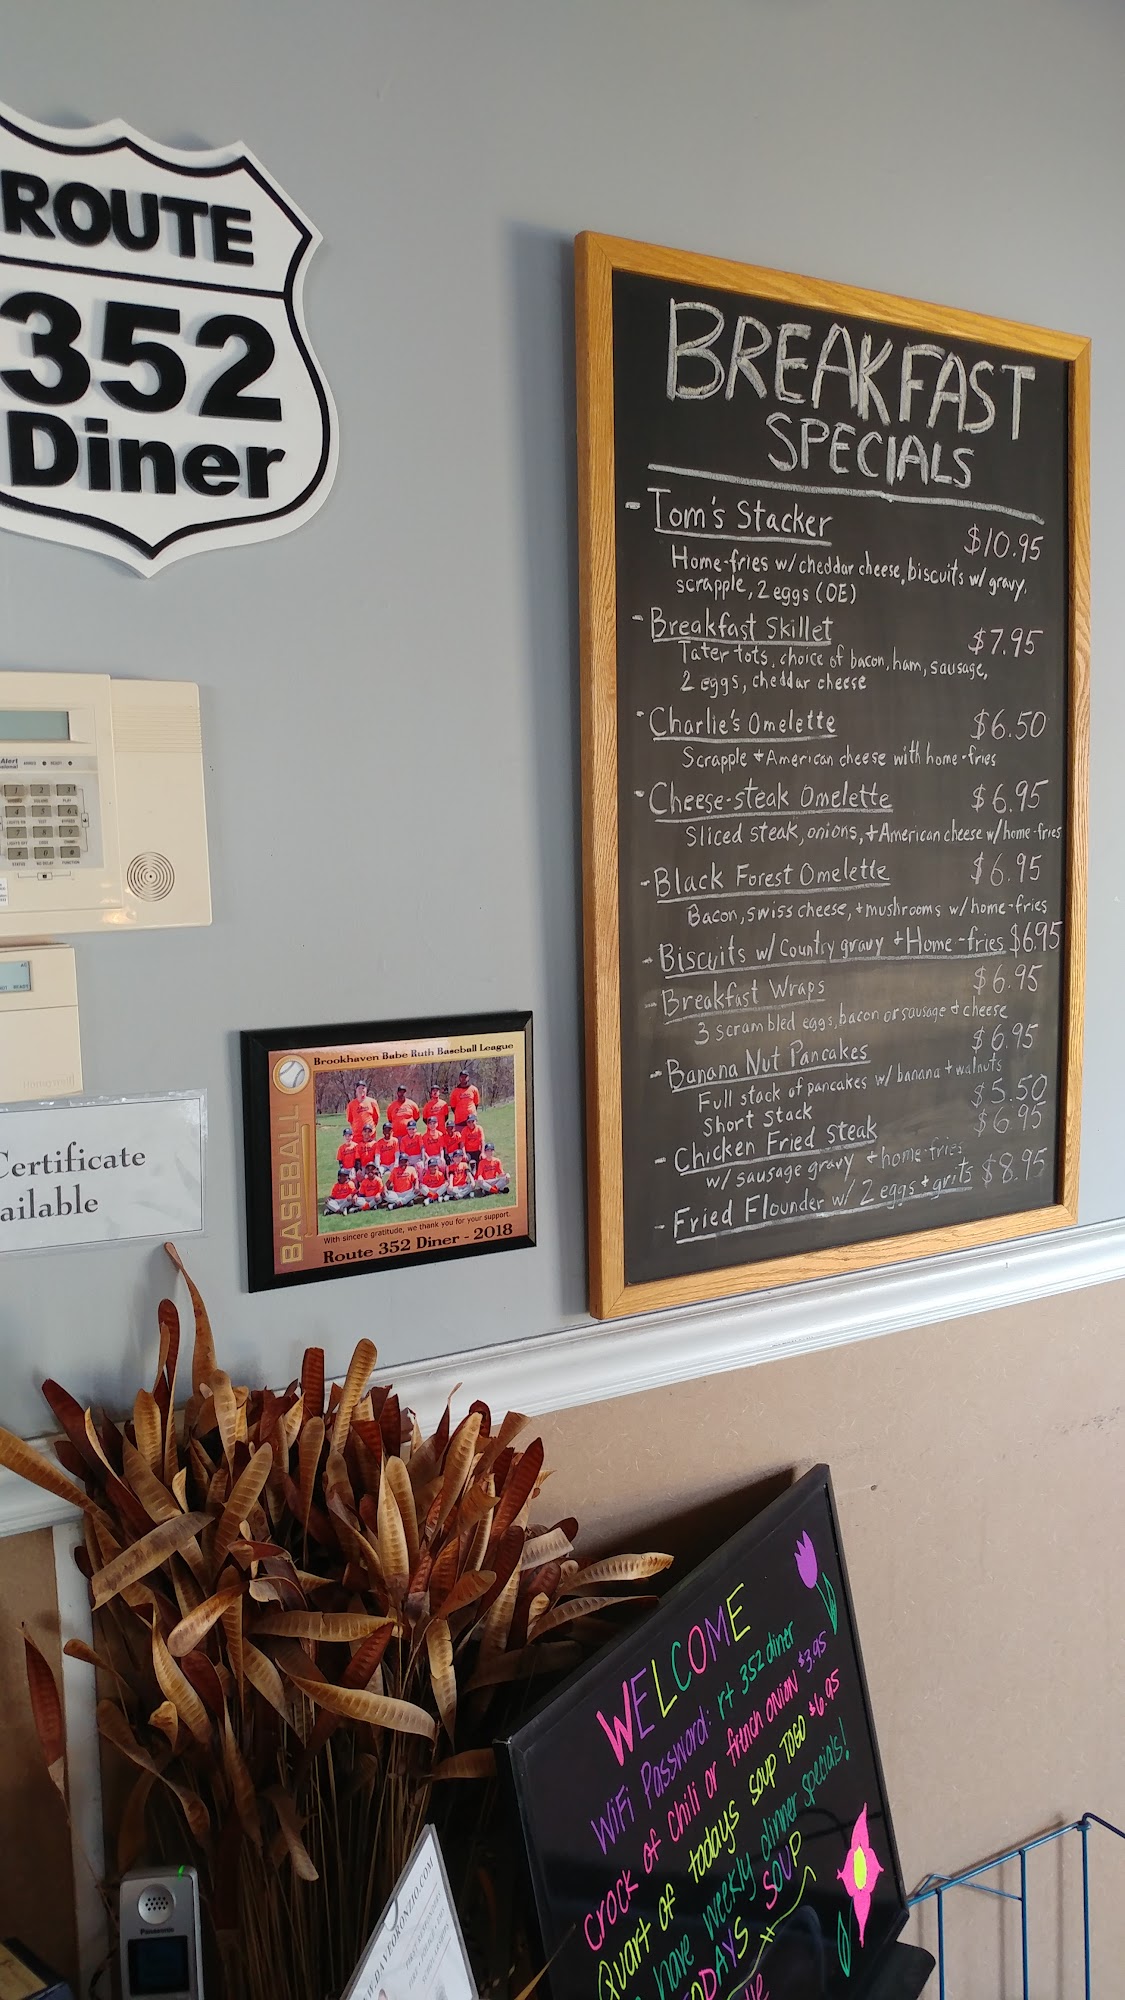 ROUTE
352
Diner
BREAKFAST
SPECIALS
- Tom's Stacker $10.95
Home-fries w/ cheddar cheese, biscuits w/ gravy,
scrapple, 2 eggs (OE)
- Breakfast Skillet $7.95
Tater tots, choice of bacon, ham, sausage,
2 eggs, cheddar cheese
- Charlie's Omelette $6.50
Scrapple + American cheese with home-fries
- Cheese-steak Omelette $6.95
Sliced steak, onions, + American cheese w/ home-fries
- Black Forest Omelette $6.95
Bacon, swiss cheese, + mushrooms w/ home-fries
- Biscuits w/ Country gravy + Home-fries $6.95
- Breakfast Wraps $6.95
3 scrambled eggs, bacon or sausage + cheese
- Banana Nut Pancakes $6.95
Full stack of pancakes w/ banana + walnuts
Short stack $5.50
- Chicken Fried Steak $6.95
w/ sausage gravy + home-fries
- Fried Flounder w/ 2 eggs + grits $8.95
Honeywell
Certificate
ailable
Brookhaven Babe Ruth Baseball League
BASEBALL
With sincere gratitude, we thank you for your support.
Route 352 Diner - 2018
WELCOME
WiFi Password: rt 352diner
crock of chili or french onion $3.95
Quart of todays soup TOGO $6.95
have weekly dinner specials!
ODAYS SOUP
Panasonic